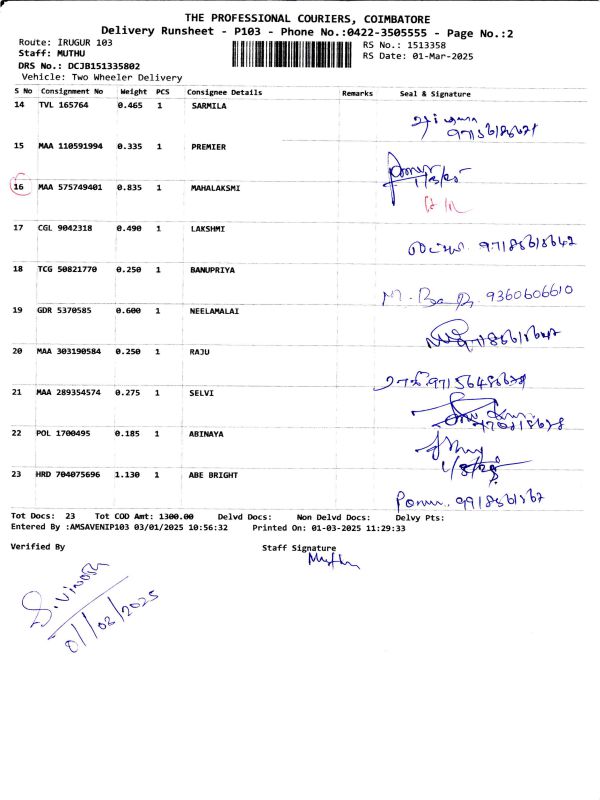 THE PROFESSIONAL COURIERS, COIMBATORE
Delivery Runsheet - P103 - Phone No.:0422-3505555 - Page No.:2
Route: IRUGUR 103
RS No.: 1513358
Staff: MUTHU
RS Date: 01-Mar-2025
DRS No.: DCJB151335802
Vehicle: Two Wheeler Delivery
S No Consignment No Weight PCS Consignee Details Remarks Seal & Signature
14 TVL 165764 0.465 1 SARMILA
15 MAA 110591994 0.335 1 PREMIER
16 MAA 575749401 0.835 1 MAHALAKSMI
17 CGL 9042318 0.490 1 LAKSHMI
18 TCG 50821770 0.250 1 BANUPRIYA
9360606610
19 GDR 5370585 0.600 1 NEELAMALAI
20 MAA 303190584 0.250 1 RAJU
21 MAA 289354574 0.275 1 SELVI
22 POL 1700495 0.185 1 ABINAYA
23 HRD 704075696 1.130 1 ABE BRIGHT
Tot Docs: 23 Tot COD Amt: 1300.00 Delvd Docs: Non Delvd Docs: Delvy Pts:
Entered By :AMSAVENIP103 03/01/2025 10:56:32 Printed On: 01-03-2025 11:29:33
Verified By Staff Signature
Muthu
S. Vinoth